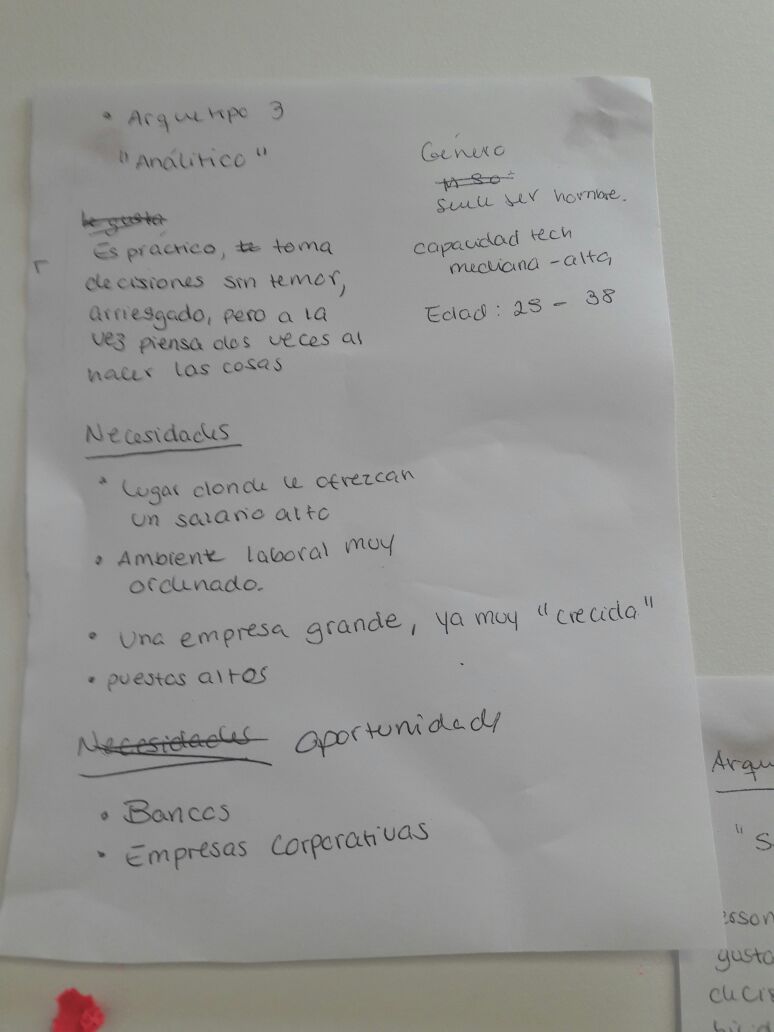 • Arquetipo 3
"Análitico"
le gusta
Es práctico, te toma
decisiones sin temor,
arriesgado, pero a la
vez piensa dos veces al
hacer las cosas
Género
suele ser hombre.
capacidad tech
mediana - alta,
Edad: 25 - 38
Necesidades
• Lugar donde le ofrezcan
un salario alto
• Ambiente laboral muy
ordenado.
• Una empresa grande, ya muy "crecida"
• puestos altos
Necesidades Oportunidads
• Bancos
• Empresas corporativas
Arqu
"S
erson
gusta